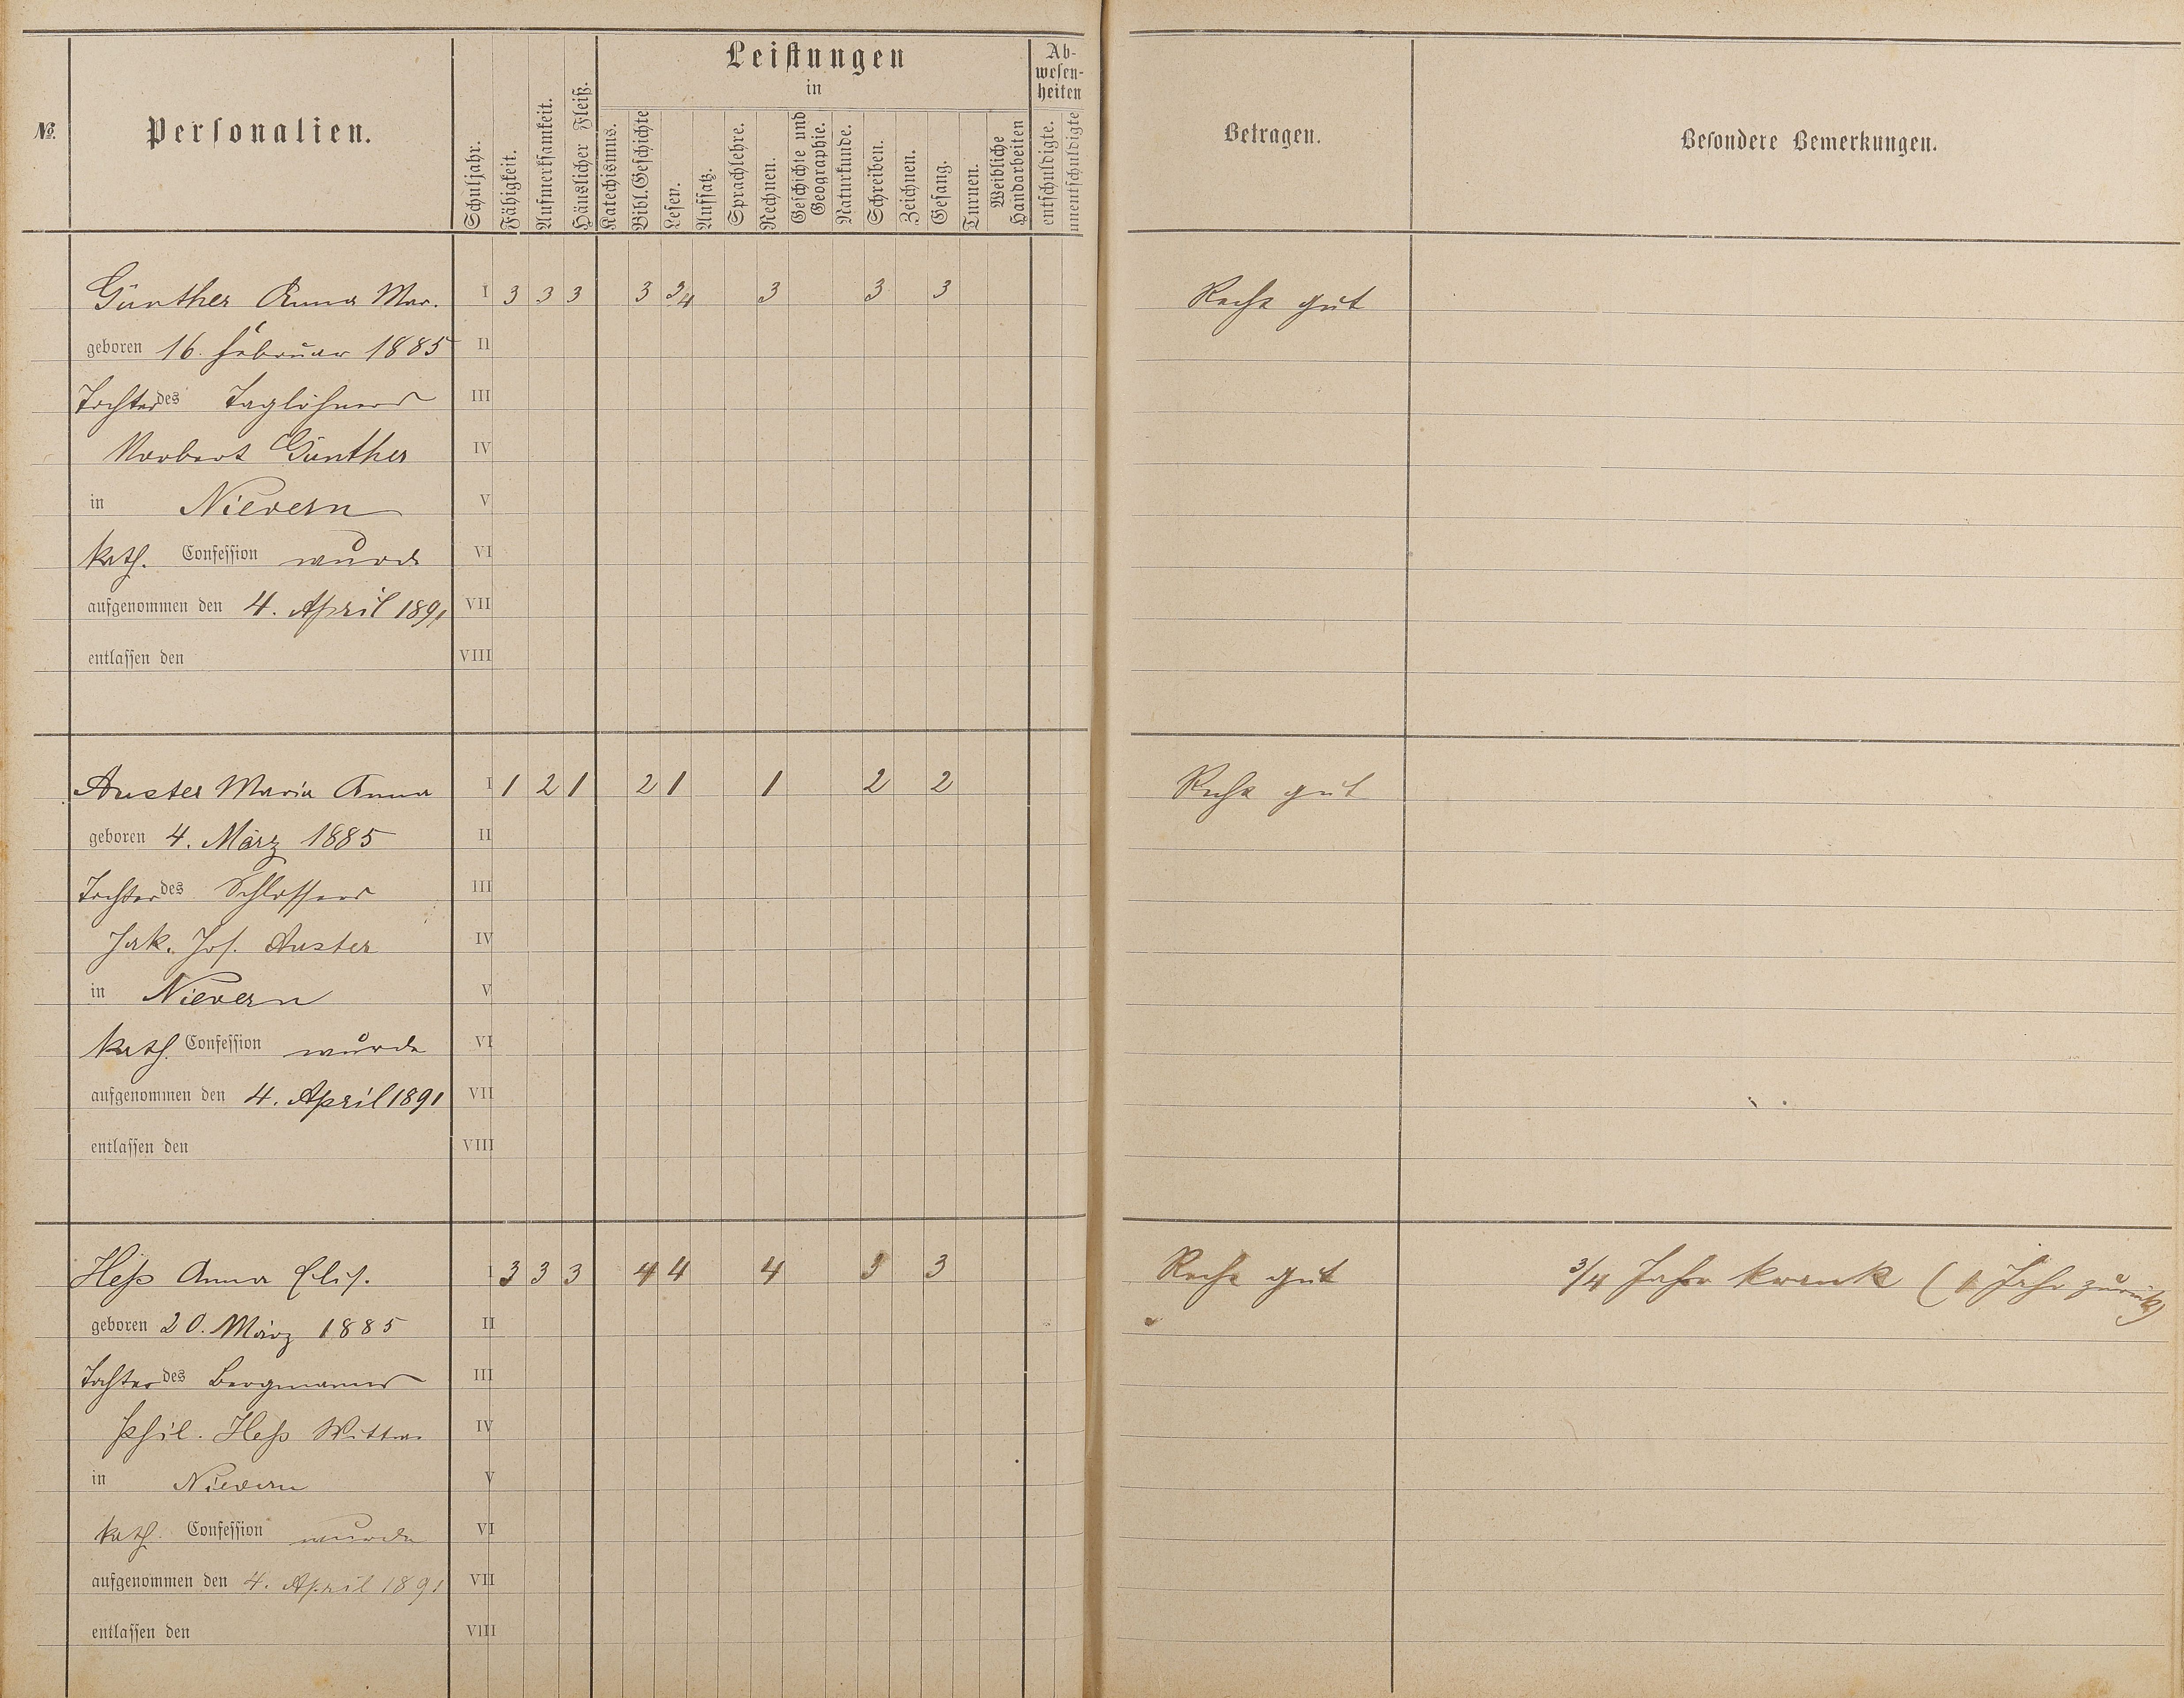 №.
Personalien.
Schuljahr.
Fähigkeit.
Aufmerksamkeit.
Häuslicher Fleiß.
Leistungen
in
Katechismus.
Bibl. Geschichte
Lesen.
Aufsatz.
Sprachlehre.
Rechnen.
Geschichte und
Geographie.
Naturkunde.
Schreiben.
Zeichnen.
Gesang.
Turnen.
Weibliche
Handarbeiten
Ab-
wesen-
heiten
entschuldigte.
unentschuldigte
Betragen.
Besondere Bemerkungen.
Günther Anna Mar. I 3 3 3 3 3/4 3 3 3 Recht gut
geboren 16. Februar 1885 II
Tochter des Taglöhners III
Norbert Günther IV
in Nievern V
kath. Confession wurde VI
aufgenommen den 4. April 1891 VII
entlassen den VIII
Auster Maria Anna I 1 2 1 2 1 1 2 2 Recht gut
geboren 4. März 1885 II
Tochter des Schlossers III
Jak. Jos. Auster IV
in Nievern V
kath. Confession wurde VI
aufgenommen den 4. April 1891 VII
entlassen den VIII
Heß Anna Elis. I 3 3 3 4 4 4 3 3 Recht gut 3/4 Jahr krank (1 Jahr zurück)
geboren 20. März 1885 II
Tochter des Bergmanns III
Phil. Heß Wittwe IV
in Nievern V
kath. Confession wurde VI
aufgenommen den 4. April 1891 VII
entlassen den VIII